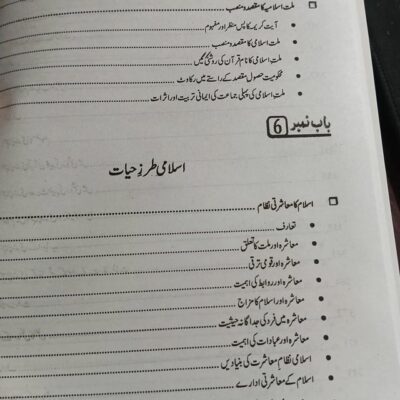 ملت اسلامیہ کا مقصد و منصب
آیت کریمہ کا پس منظر اور مفہوم
ملت اسلامی کا مقصد و منصب
ملت اسلامی کا نام قرآن کی روشنی میں
محکومیت حصول مقصد کے راستے میں رکاوٹ
ملت اسلامی کی پہلی جماعت کی ایمانی تربیت اور اثرات
باب نمبر 6
اسلامی طرز حیات
اسلام کا معاشرتی نظام
تعارف
معاشرہ اور ملت کا تعلق
معاشرہ اور قومی ترقی
معاشرہ اور روابط کی اہمیت
معاشرہ اور اسلام کا مزاج
معاشرہ میں فرد کی جداگانہ حیثیت
معاشرہ اور عبادات کی اہمیت
اسلامی نظام معاشرت کی بنیادیں
اسلام کے معاشرتی ادارے